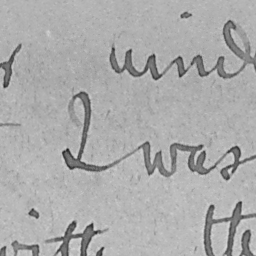 wind
I was
with the